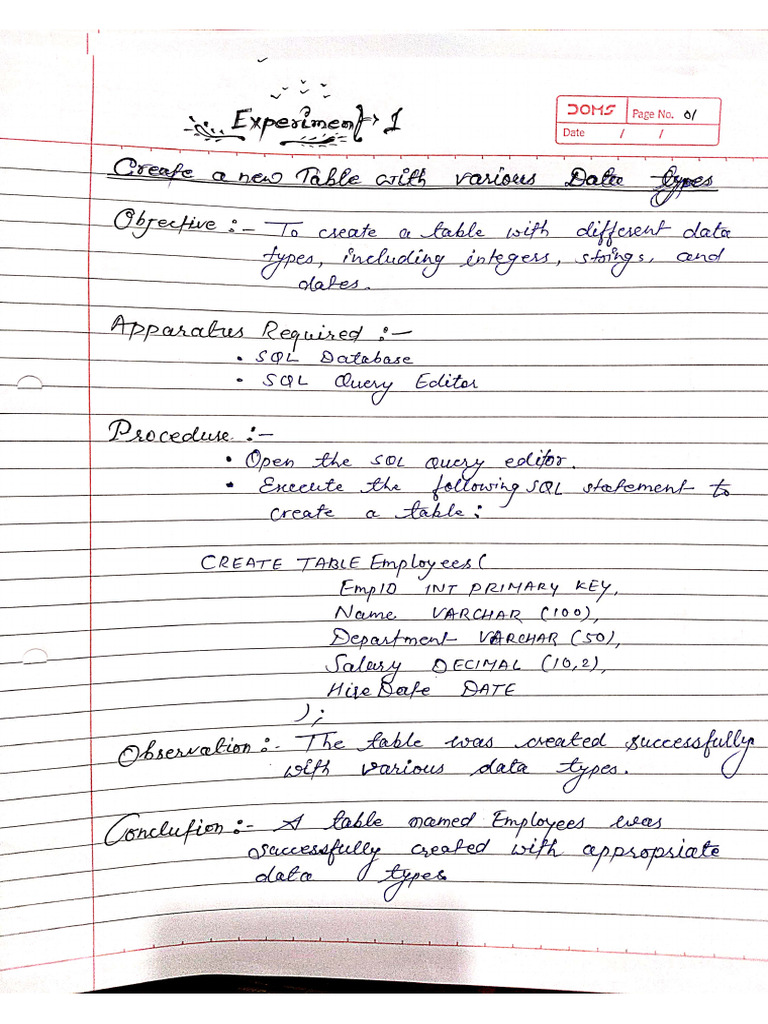 Experiment → 1
DOMS Page No. 01
Date / /
Create a new Table with various Data types
Objective :- To create a table with different data
types, including integers, strings, and
dates.
Apparatus Required :-
• SQL Database
• SQL Query Editor
Procedure :-
• Open the SQL query editor.
• Execute the following SQL statement to
create a table:
CREATE TABLE Employees(
EmpID INT PRIMARY KEY,
Name VARCHAR (100),
Department VARCHAR (50),
Salary DECIMAL (10,2),
Hire Date DATE
);
Observation :- The table was created successfully
with various data types.
Conclusion :- A table named Employees was
successfully created with appropriate
data types